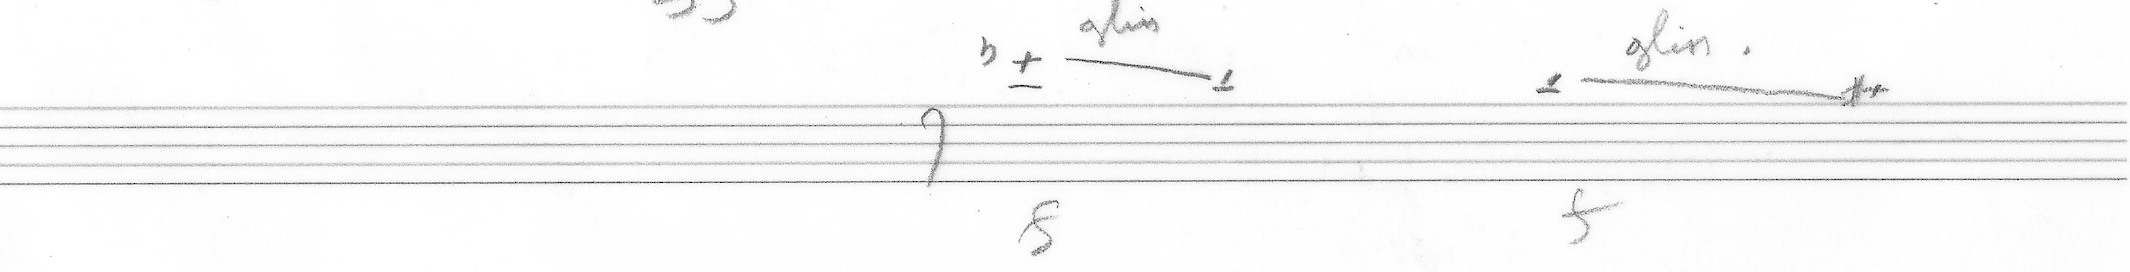 gliss gliss.
f f